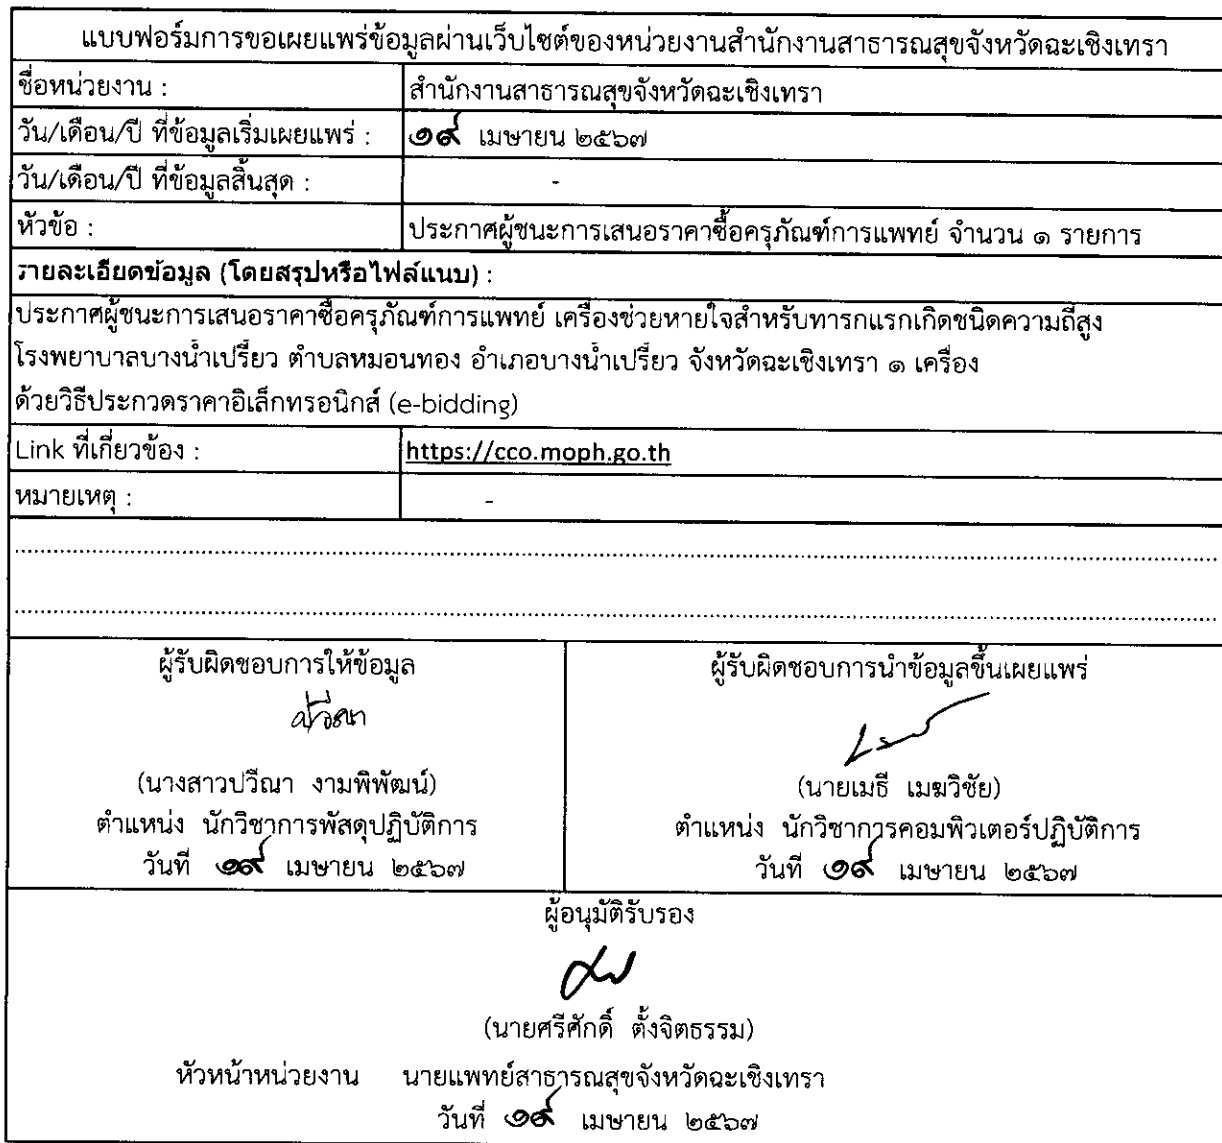 แบบฟอร์มการขอเผยแพร่ข้อมูลผ่านเว็บไซต์ของหน่วยงานสำนักงานสาธารณสุขจังหวัดฉะเชิงเทรา
ชื่อหน่วยงาน : สำนักงานสาธารณสุขจังหวัดฉะเชิงเทรา
วัน/เดือน/ปี ที่ข้อมูลเริ่มเผยแพร่ : ๑๙ เมษายน ๒๕๖๗
วัน/เดือน/ปี ที่ข้อมูลสิ้นสุด : -
หัวข้อ : ประกาศผู้ชนะการเสนอราคาซื้อครุภัณฑ์การแพทย์ จำนวน ๑ รายการ
รายละเอียดข้อมูล (โดยสรุปหรือไฟล์แนบ) :
ประกาศผู้ชนะการเสนอราคาซื้อครุภัณฑ์การแพทย์ เครื่องช่วยหายใจสำหรับทารกแรกเกิดชนิดความถี่สูง
โรงพยาบาลบางน้ำเปรี้ยว ตำบลหมอนทอง อำเภอบางน้ำเปรี้ยว จังหวัดฉะเชิงเทรา ๑ เครื่อง
ด้วยวิธีประกวดราคาอิเล็กทรอนิกส์ (e-bidding)
Link ที่เกี่ยวข้อง : https://cco.moph.go.th
หมายเหตุ : -
ผู้รับผิดชอบการให้ข้อมูล ผู้รับผิดชอบการนำข้อมูลขึ้นเผยแพร่
ปวีณา
(นางสาวปวีณา งามพิพัฒน์) (นายเมธี เมฆวิชัย)
ตำแหน่ง นักวิชาการพัสดุปฏิบัติการ ตำแหน่ง นักวิชาการคอมพิวเตอร์ปฏิบัติการ
วันที่ ๑๙ เมษายน ๒๕๖๗ วันที่ ๑๙ เมษายน ๒๕๖๗
ผู้อนุมัติรับรอง
(นายศรีศักดิ์ ตั้งจิตธรรม)
หัวหน้าหน่วยงาน นายแพทย์สาธารณสุขจังหวัดฉะเชิงเทรา
วันที่ ๑๙ เมษายน ๒๕๖๗